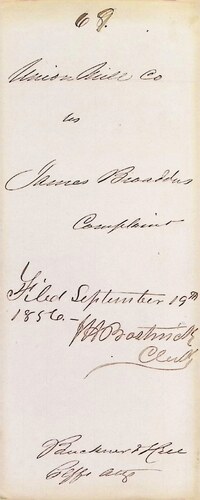 68.
Union Mill Co
vs
James Broaddus
Complaint
Filed September 19th
1856.-
Bostwick
Clerk
Buckner & Hill
Plffs Atty